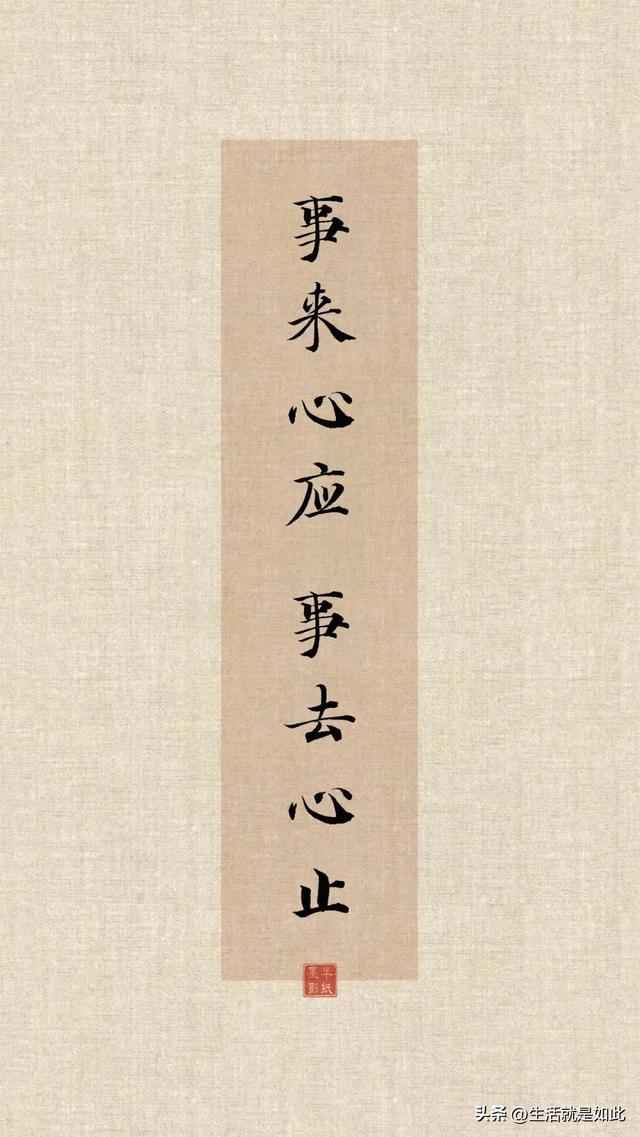 事来心应 事去心止
半纸
墨影
头条 @生活就是如此